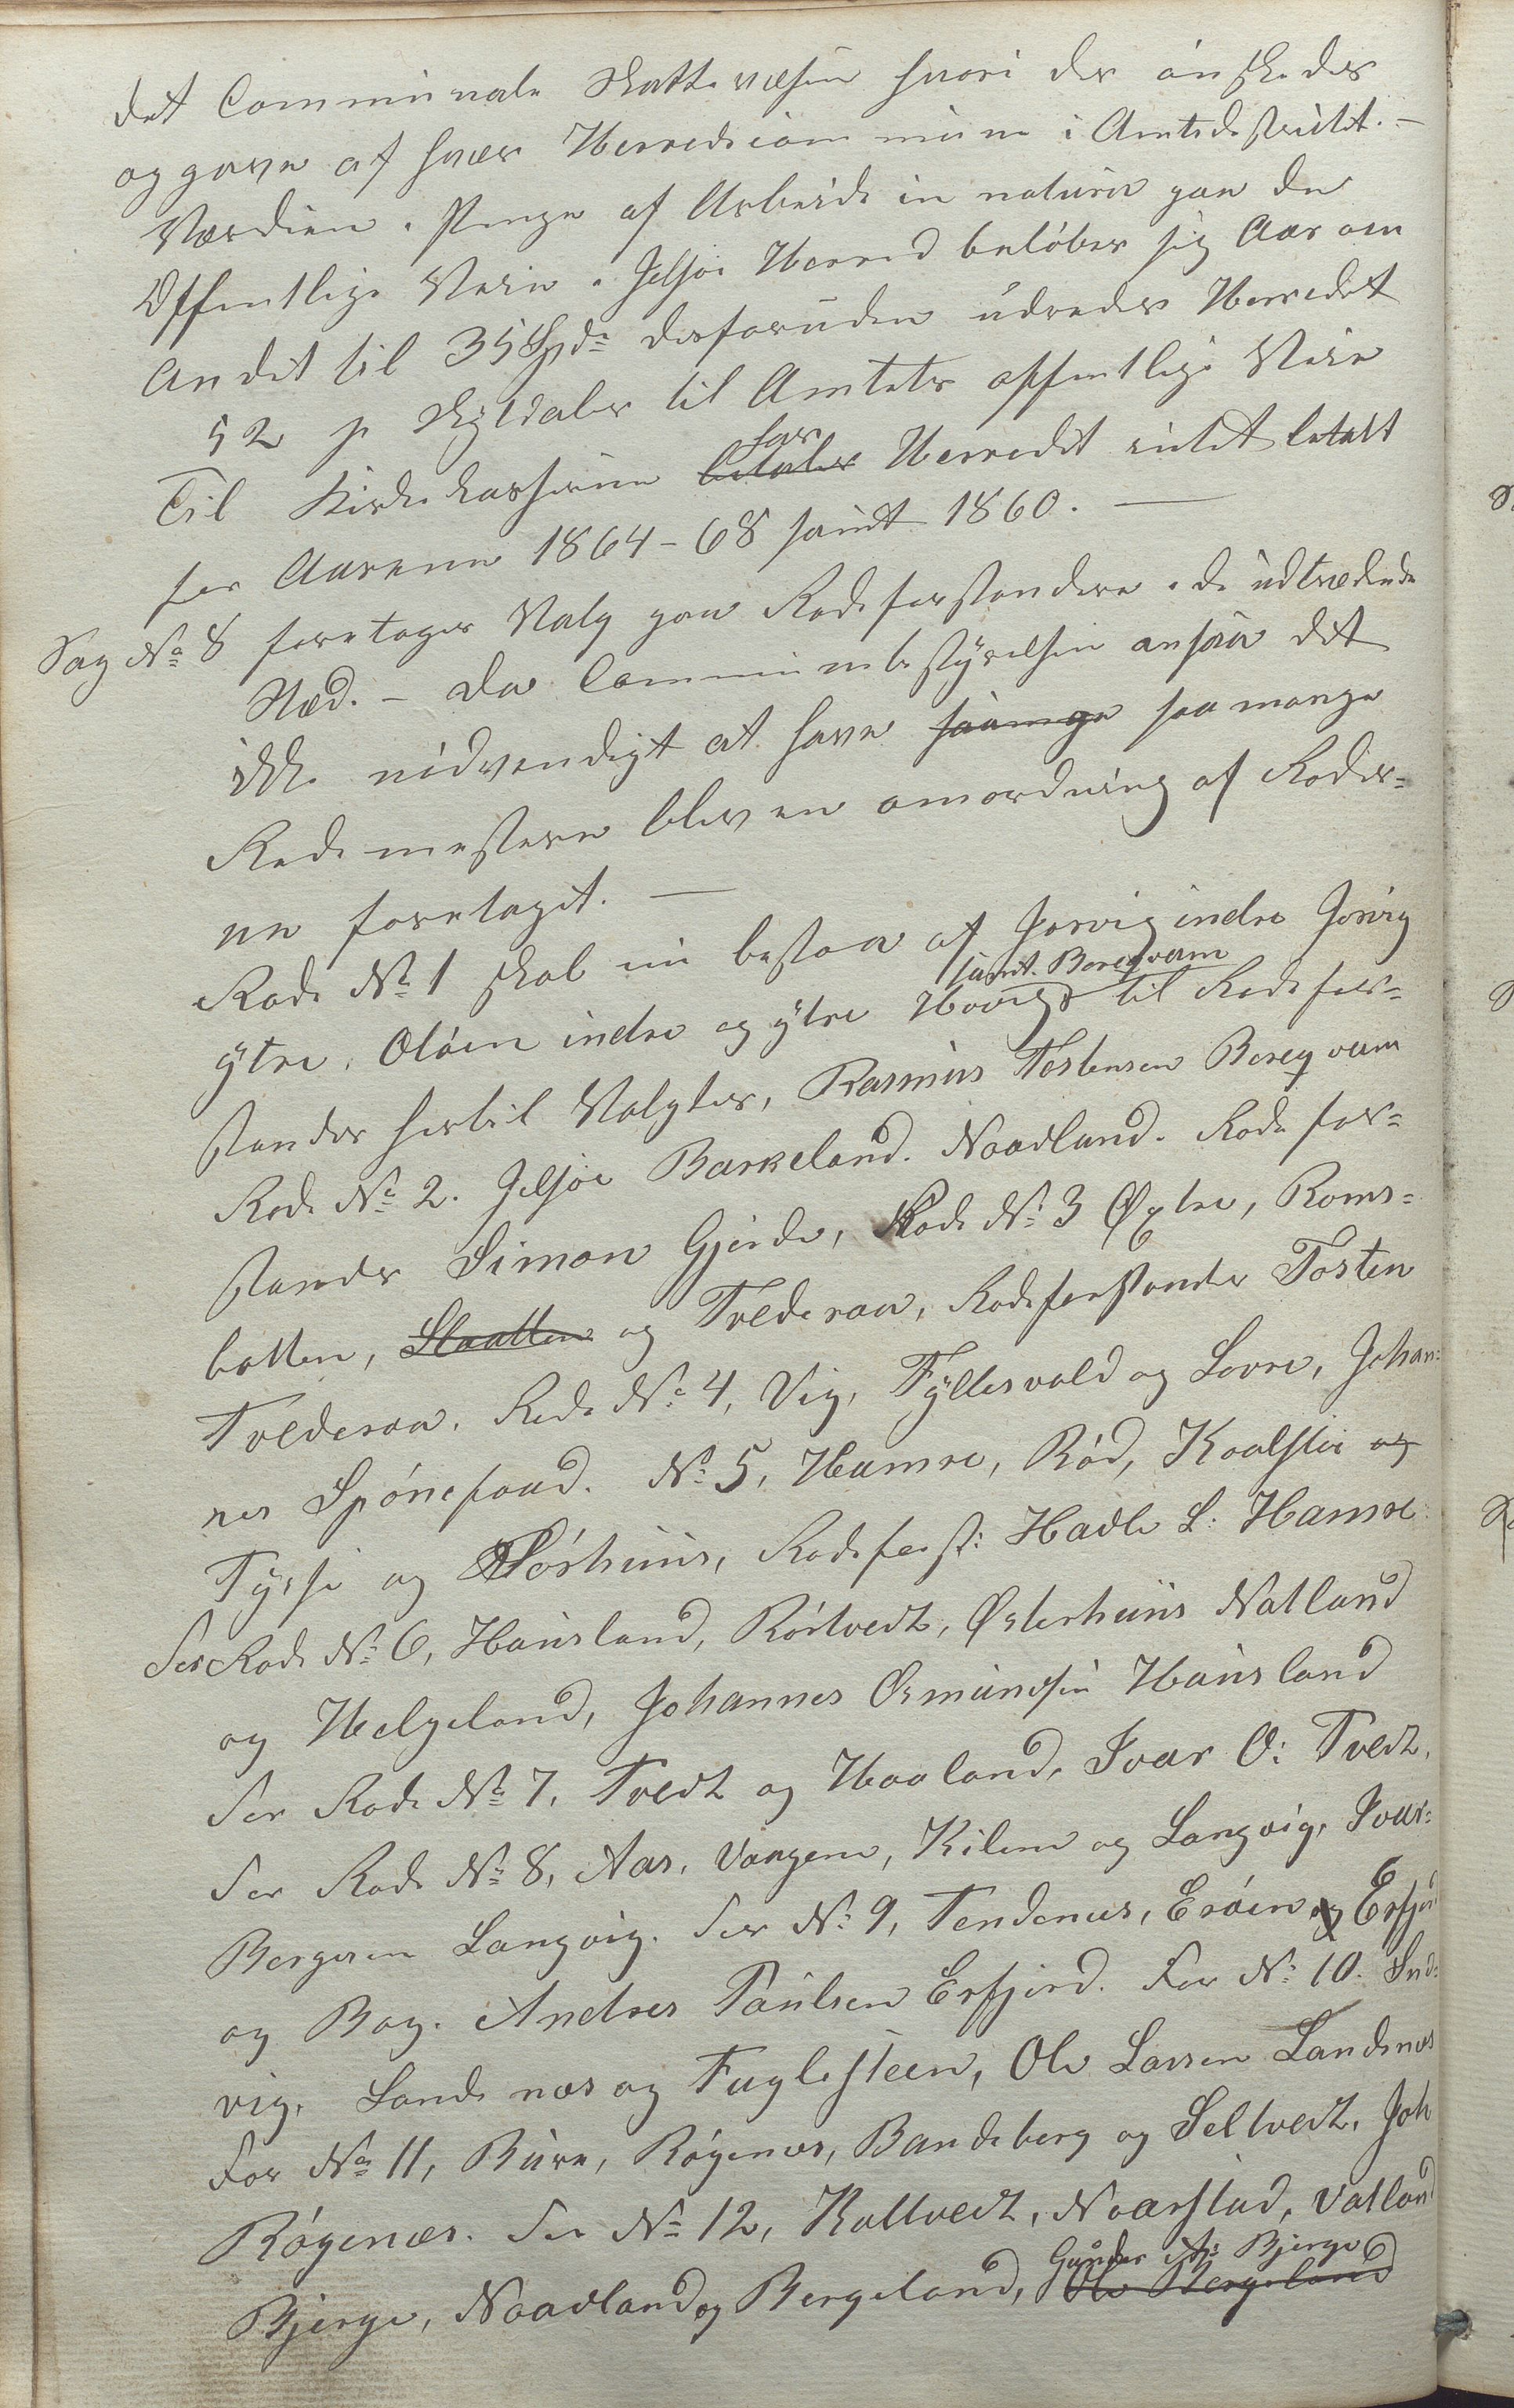 det Communale Skattevæsen hvori der ønskedes
opgave af hver Herredscommune i Amtsdistriktet. —
Værdien i Penge af Arbeide in natura paa de
Offentlige Veie i Jelsøe Herred beløber sig Aar om
Andet til 35 Spd. desforuden udreder Herredet
52 p Skyldaler til Amtets offentlige Veie
Til Kirkekasserne betaler har Herredet intet betalt
for Aarene 1864-68 samt 1860. —
Sag No 8 foretages Valg paa Rodeforstandere i de udtrædendes
Sted. — Da Communebestyrelsen ansaa det
ikke nødvendigt at have saamge saa mange
Rodemestere blev en omordning af Roder-
ne foretaget. —
Rode No 1 skal nu bestaa af Jorvig indre Jorvig
ytre, Oløen indre og ytre Hovig samt Bergqvam til Rodefor-
stander hertil Valgtes, Rasmus Tostensen Bereqvam
Rode No 2. Jelsøe Barkeland. Naadland. Rodefor-
stander Simon Gjerde, Rode No 3 Øxtre, Roms-
botten, Slaatten og Tvederaa, Rodeforstander Tosten
Tvederaa. Rode No 4, Vig, Fyllesvold og Lovre, Johan-
nes Spónefaad. No 5, Hamre, Rød, Kaalstø og
Tysse og Nórhuus, Rodeforst: Hadle L: Hamre
For Rode No 6, Hausland, Rørtvedt, Østerhuus Natland
og Helgeland, Johannes Osmundsen Hausland
For Rode No 7. Tvedt og Haaland, Ivar O: Tvedt,
For Rode No 8, Aas, Vangene, Kilene og Langvig, Ivar
Bergesen Langvig. For No 9, Tendenes, Erøen og Erfjord
og Bog. Andres Paulsen Erfjord. For No 10. Ind-
vig, Landenæs og Fuglesteen, Ole Larsen Landsnæs
For No 11, Buve, Røgenæs, Bandeberg og Seltvedt, Joh
Røgenæs. For No 12, Kaltvedt, Naarstad, Vatland
Bjerge, Naadland og Bergeland, Ole Bergeland Gunder A: Bjerge